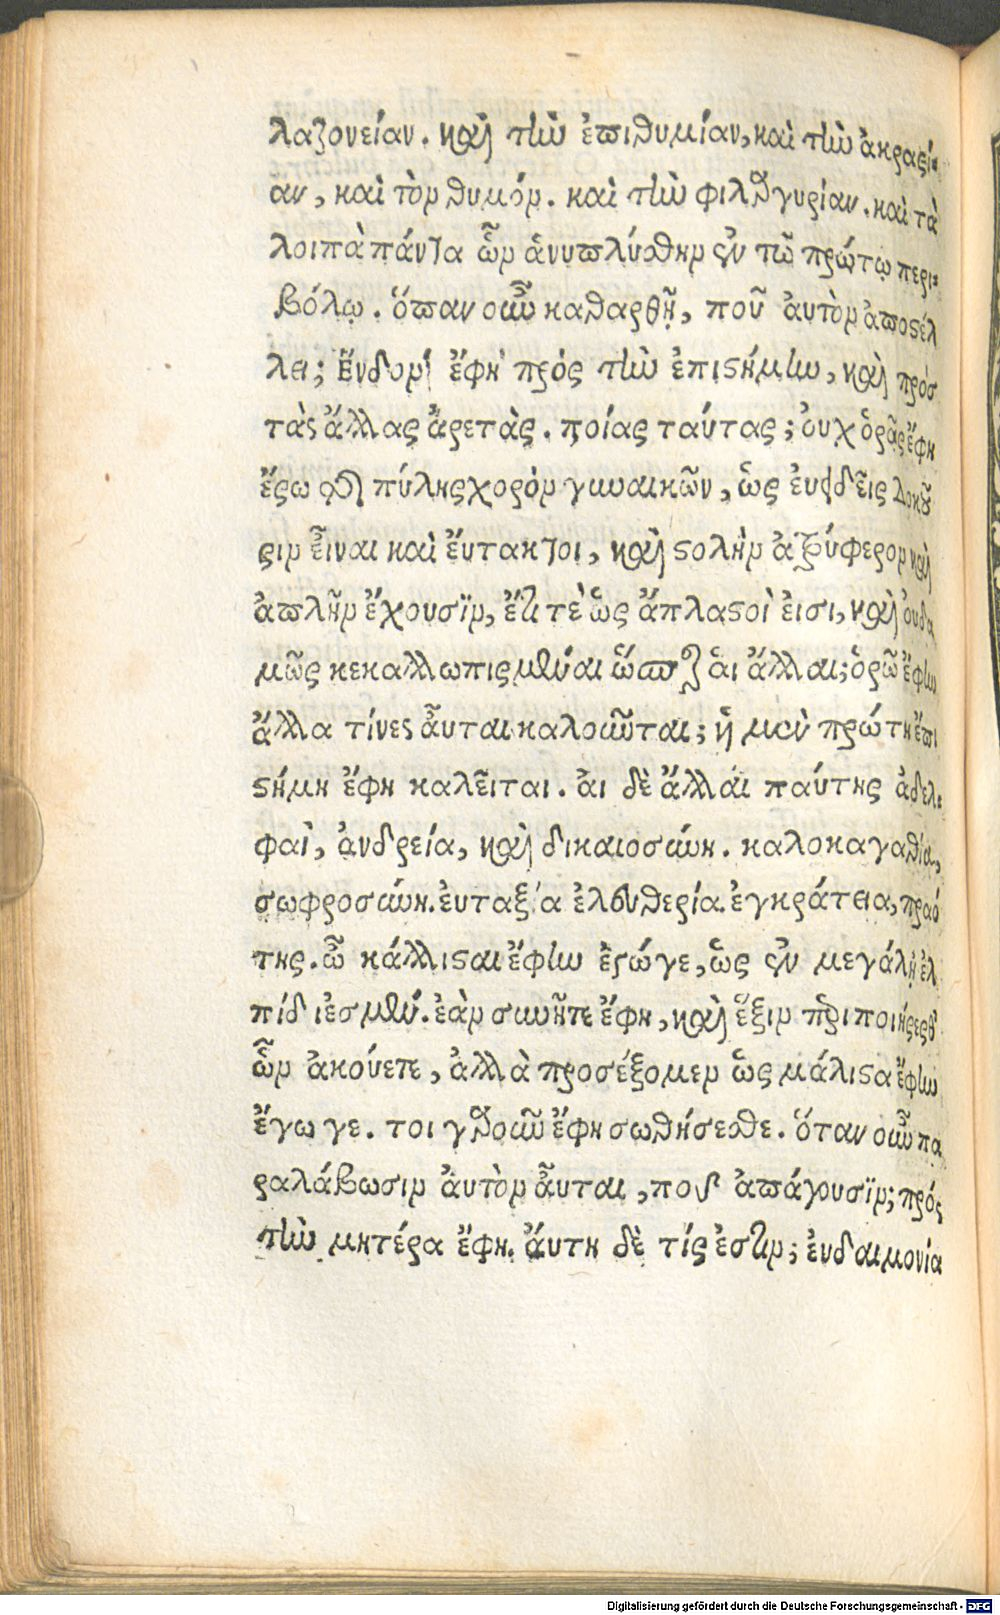 λαζονείαν. καὶ τὴν ἐπιθυμίαν, καὶ τὴν ἀκρασί-
αν, καὶ τὸν θυμόν. καὶ τὴν φιλαργυρίαν. καὶ τὰ
λοιπὰ πάντα ὧν ἀνεπλήσθην ἐν τῷ πρώτῳ περι-
βόλῳ. ὅταν οὖν καθαρθῇ, ποῦ ἀυτὸν ἀποστέλ
λει; Ἔνδον ἔφη πρός τὴν ἐπιστήμην, καὶ πρὸς
τὰς ἄλλας ἄρετὰς. ποίας ταύτας; ὀυχ ὁρᾷς ἔφη
ἔσω τῆς πύλης χορὸν γυναικῶν, ὡς ἐυειδεῖς δοκοῦ
σιν εἶναι καὶ ἔυτακτοι, καὶ στολὴν ἀτρύφερον καὶ
ἁπλῆν ἔχουσϊν, ἔτι τὲ ὡς ἄπλαστοὶ ἐισι, καὶ ὀυδα
μῶς κεκαλλωπισμέναι ὥσπερ ἁι ἄλλαι; ὁρῶ ἔφην
ἄλλα τίνες ἆυται καλοῦνται; ἡ μὲν πρώτη ἔπι
στήμη ἔφη καλεῖται. ἁι δὲ ἄλλαι ταύτης ἀδελ-
φαὶ, ἀνδρεία, καὶ δικαιοσύνη. καλοκαγαθία,
σωφροσύνη. ἐυταξία ἐλευθερία. ἐγκράτεια, πραό
της. ὦ κάλλισται ἔφην ἐγώγε, ὡς ἐν μεγάλῃ ἐλ
πίδι ἐσμέν. ἐὰν συνῆτε ἔφη, καὶ ἕξιν περιποιήσεσθε
ὧν ἀκούετε, ἀλλὰ προσέξομεν ὡς μάλιστα ἔφην
ἔγωγε. τοι γαροῦν ἔφη σωθήσεσθε. ὅταν οὖν πα
ραλάβωσιν ἀυτὸν ἆυται, ποῖ ἀπάγουσϊν; πρός
τὴν μητέρα ἔφη. ἄυτη δὲ τίς ἐστιν; ἐυδαιμονία
Digitalisierung gefördert durch die Deutsche Forschungsgemeinschaft - DFG